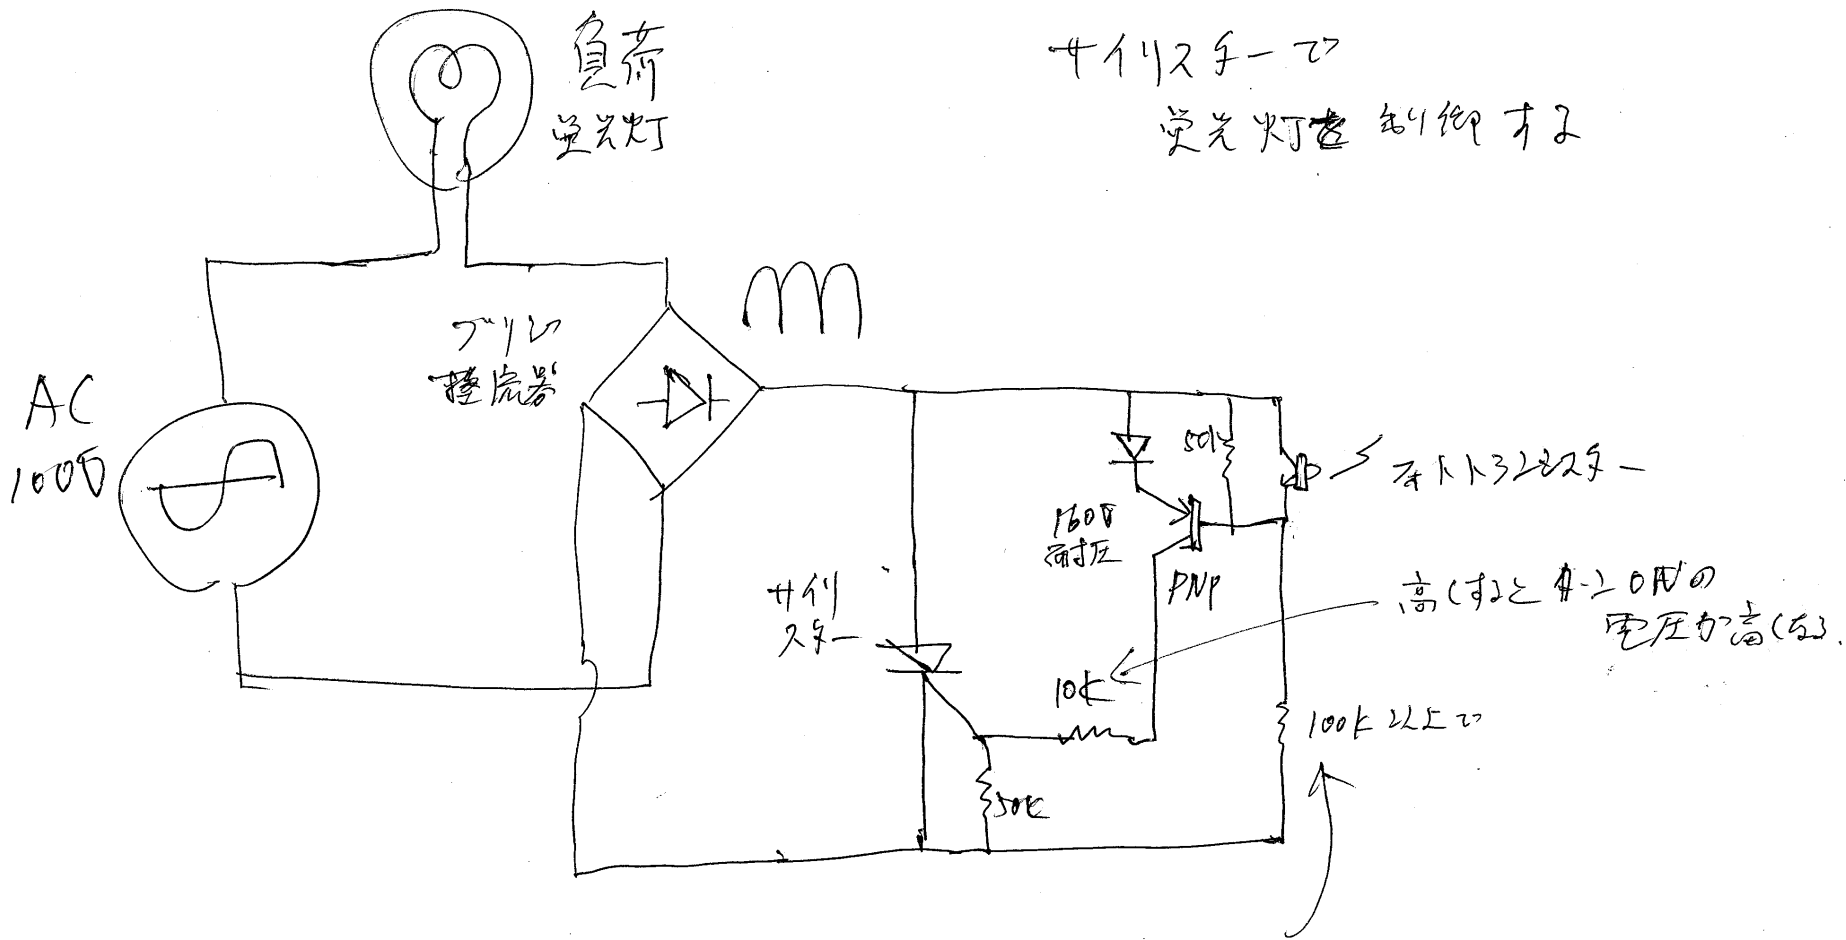 負荷
蛍光灯
サイリスターで
蛍光灯を制御する
AC
100V
ブリッジ
整流器
50k
フォトトランジスター
160V
耐圧
PNP
サイリ
スター
高くすると ターンON の
電圧が高くなる.
10K
100K 以上で
50K